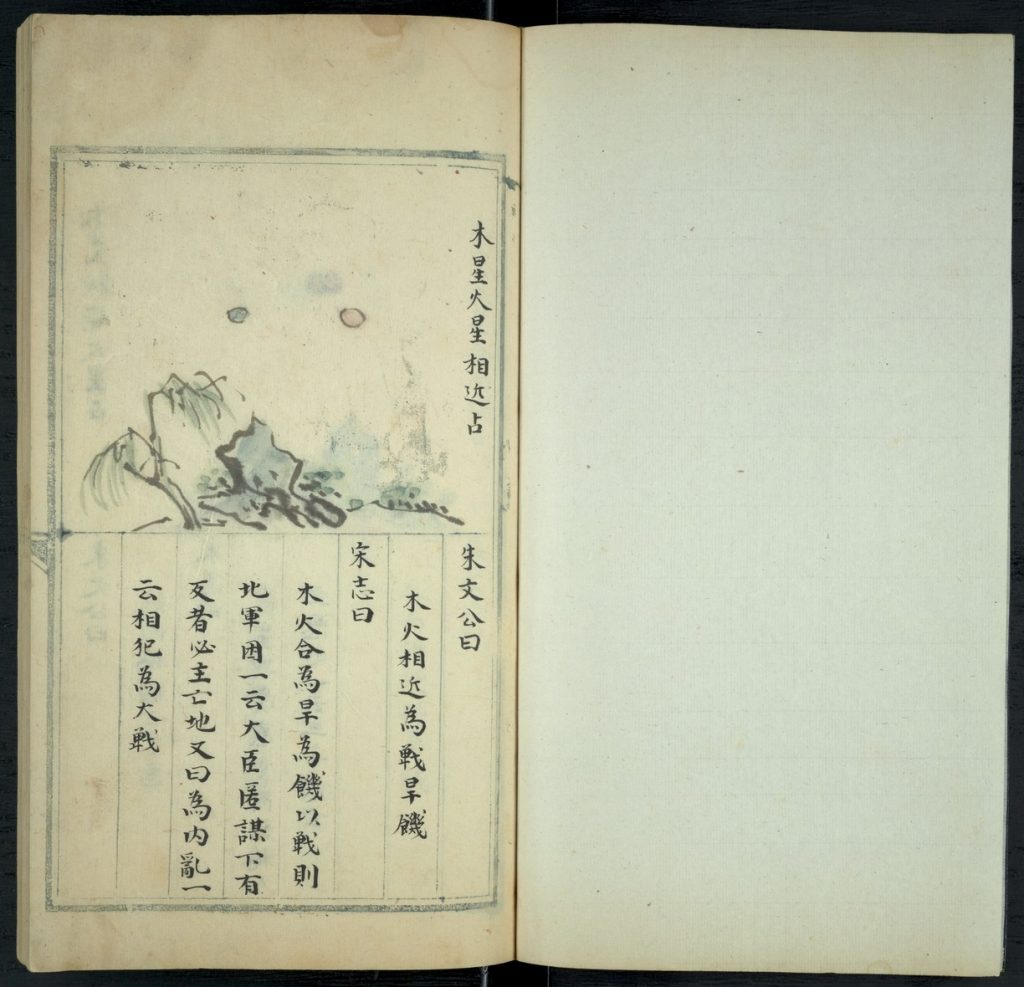 木星火星相近占
朱文公曰
木火相近為戰旱饑
宋志曰
木火合為旱為饑以戰則
北軍困一云大臣匿謀下有
反者必主亡地又曰為內亂一
云相犯為大戰